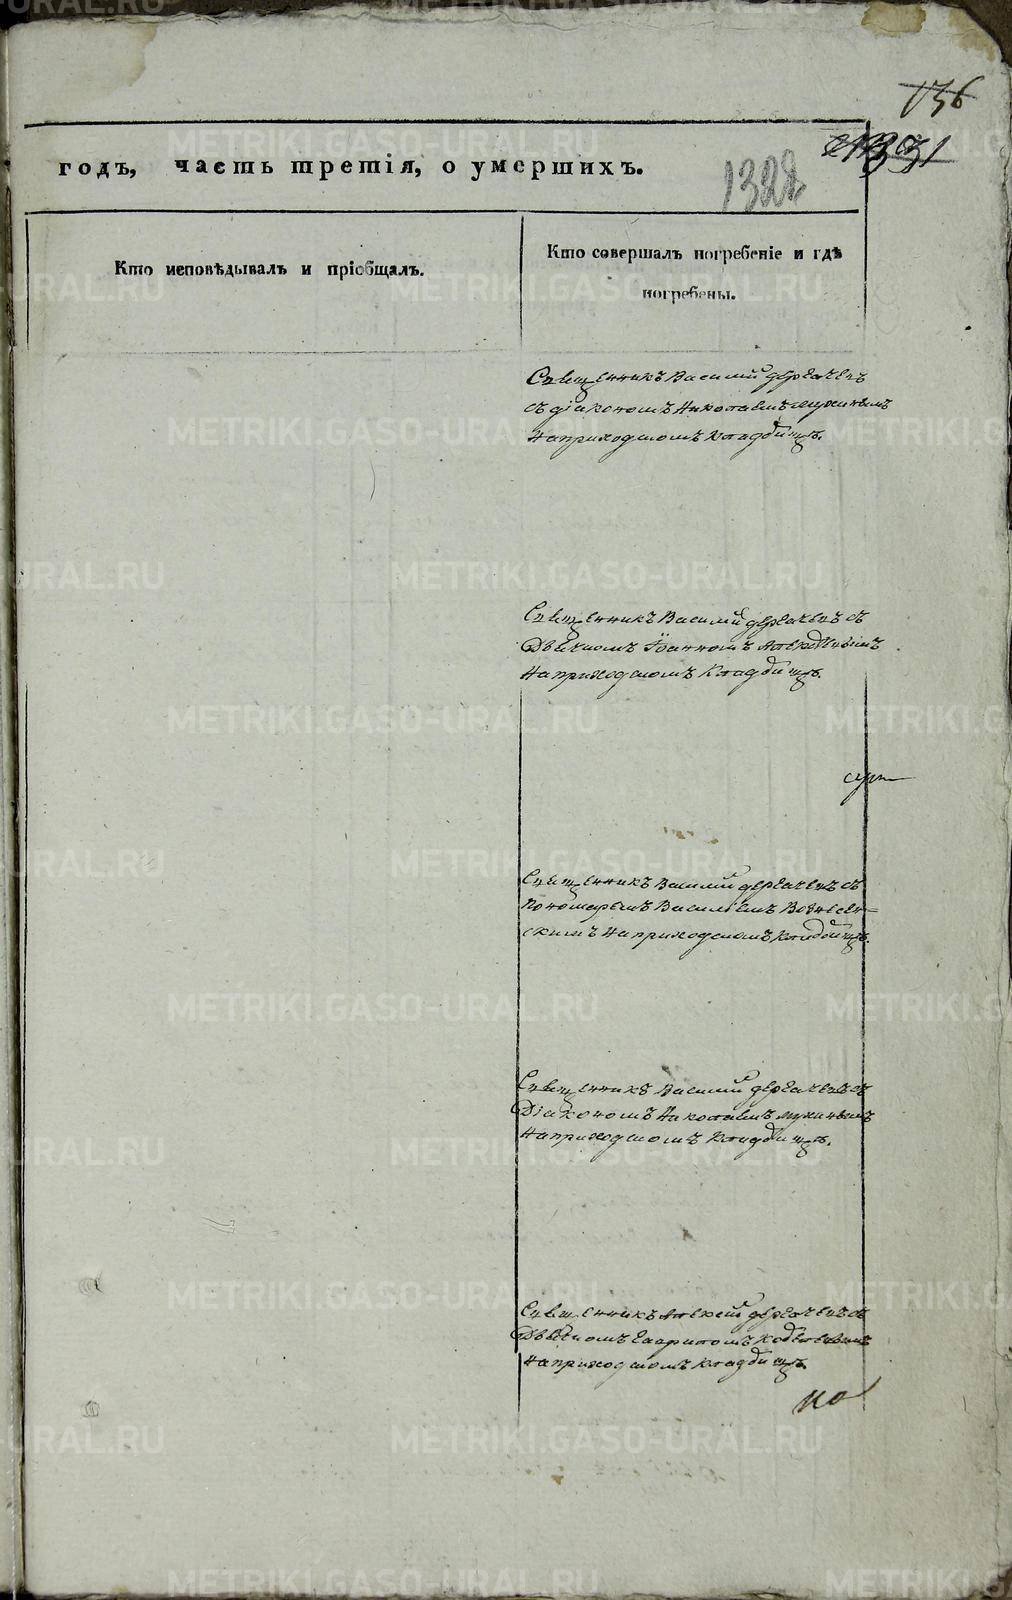 136
1331
годъ, часть третія, о умершихъ.
1322
Кто исповѣдывалъ и пріобщалъ.
Кто совершалъ погребеніе и гдѣ
погребены.
Священникъ Василій Дергачевъ
съ діакономъ Николаемъ Мухинымъ
На приходскомъ кладбищѣ.
Священникъ Василій Дергачевъ съ
Дьячкомъ Іоанномъ
На приходскомъ кладбищѣ.
Священникъ Василій Дергачевъ съ
Пономаремъ Василіемъ Вознесен-
скимъ На приходскомъ кладбищѣ.
Священникъ Василій Дергачевъ съ
Діакономъ Николаемъ Мухинымъ
На приходскомъ кладбищѣ.
Священникъ Алексей Дергачевъ съ
Дьячкомъ
На приходскомъ кладбищѣ.
METRIKI.GASO-URAL.RU